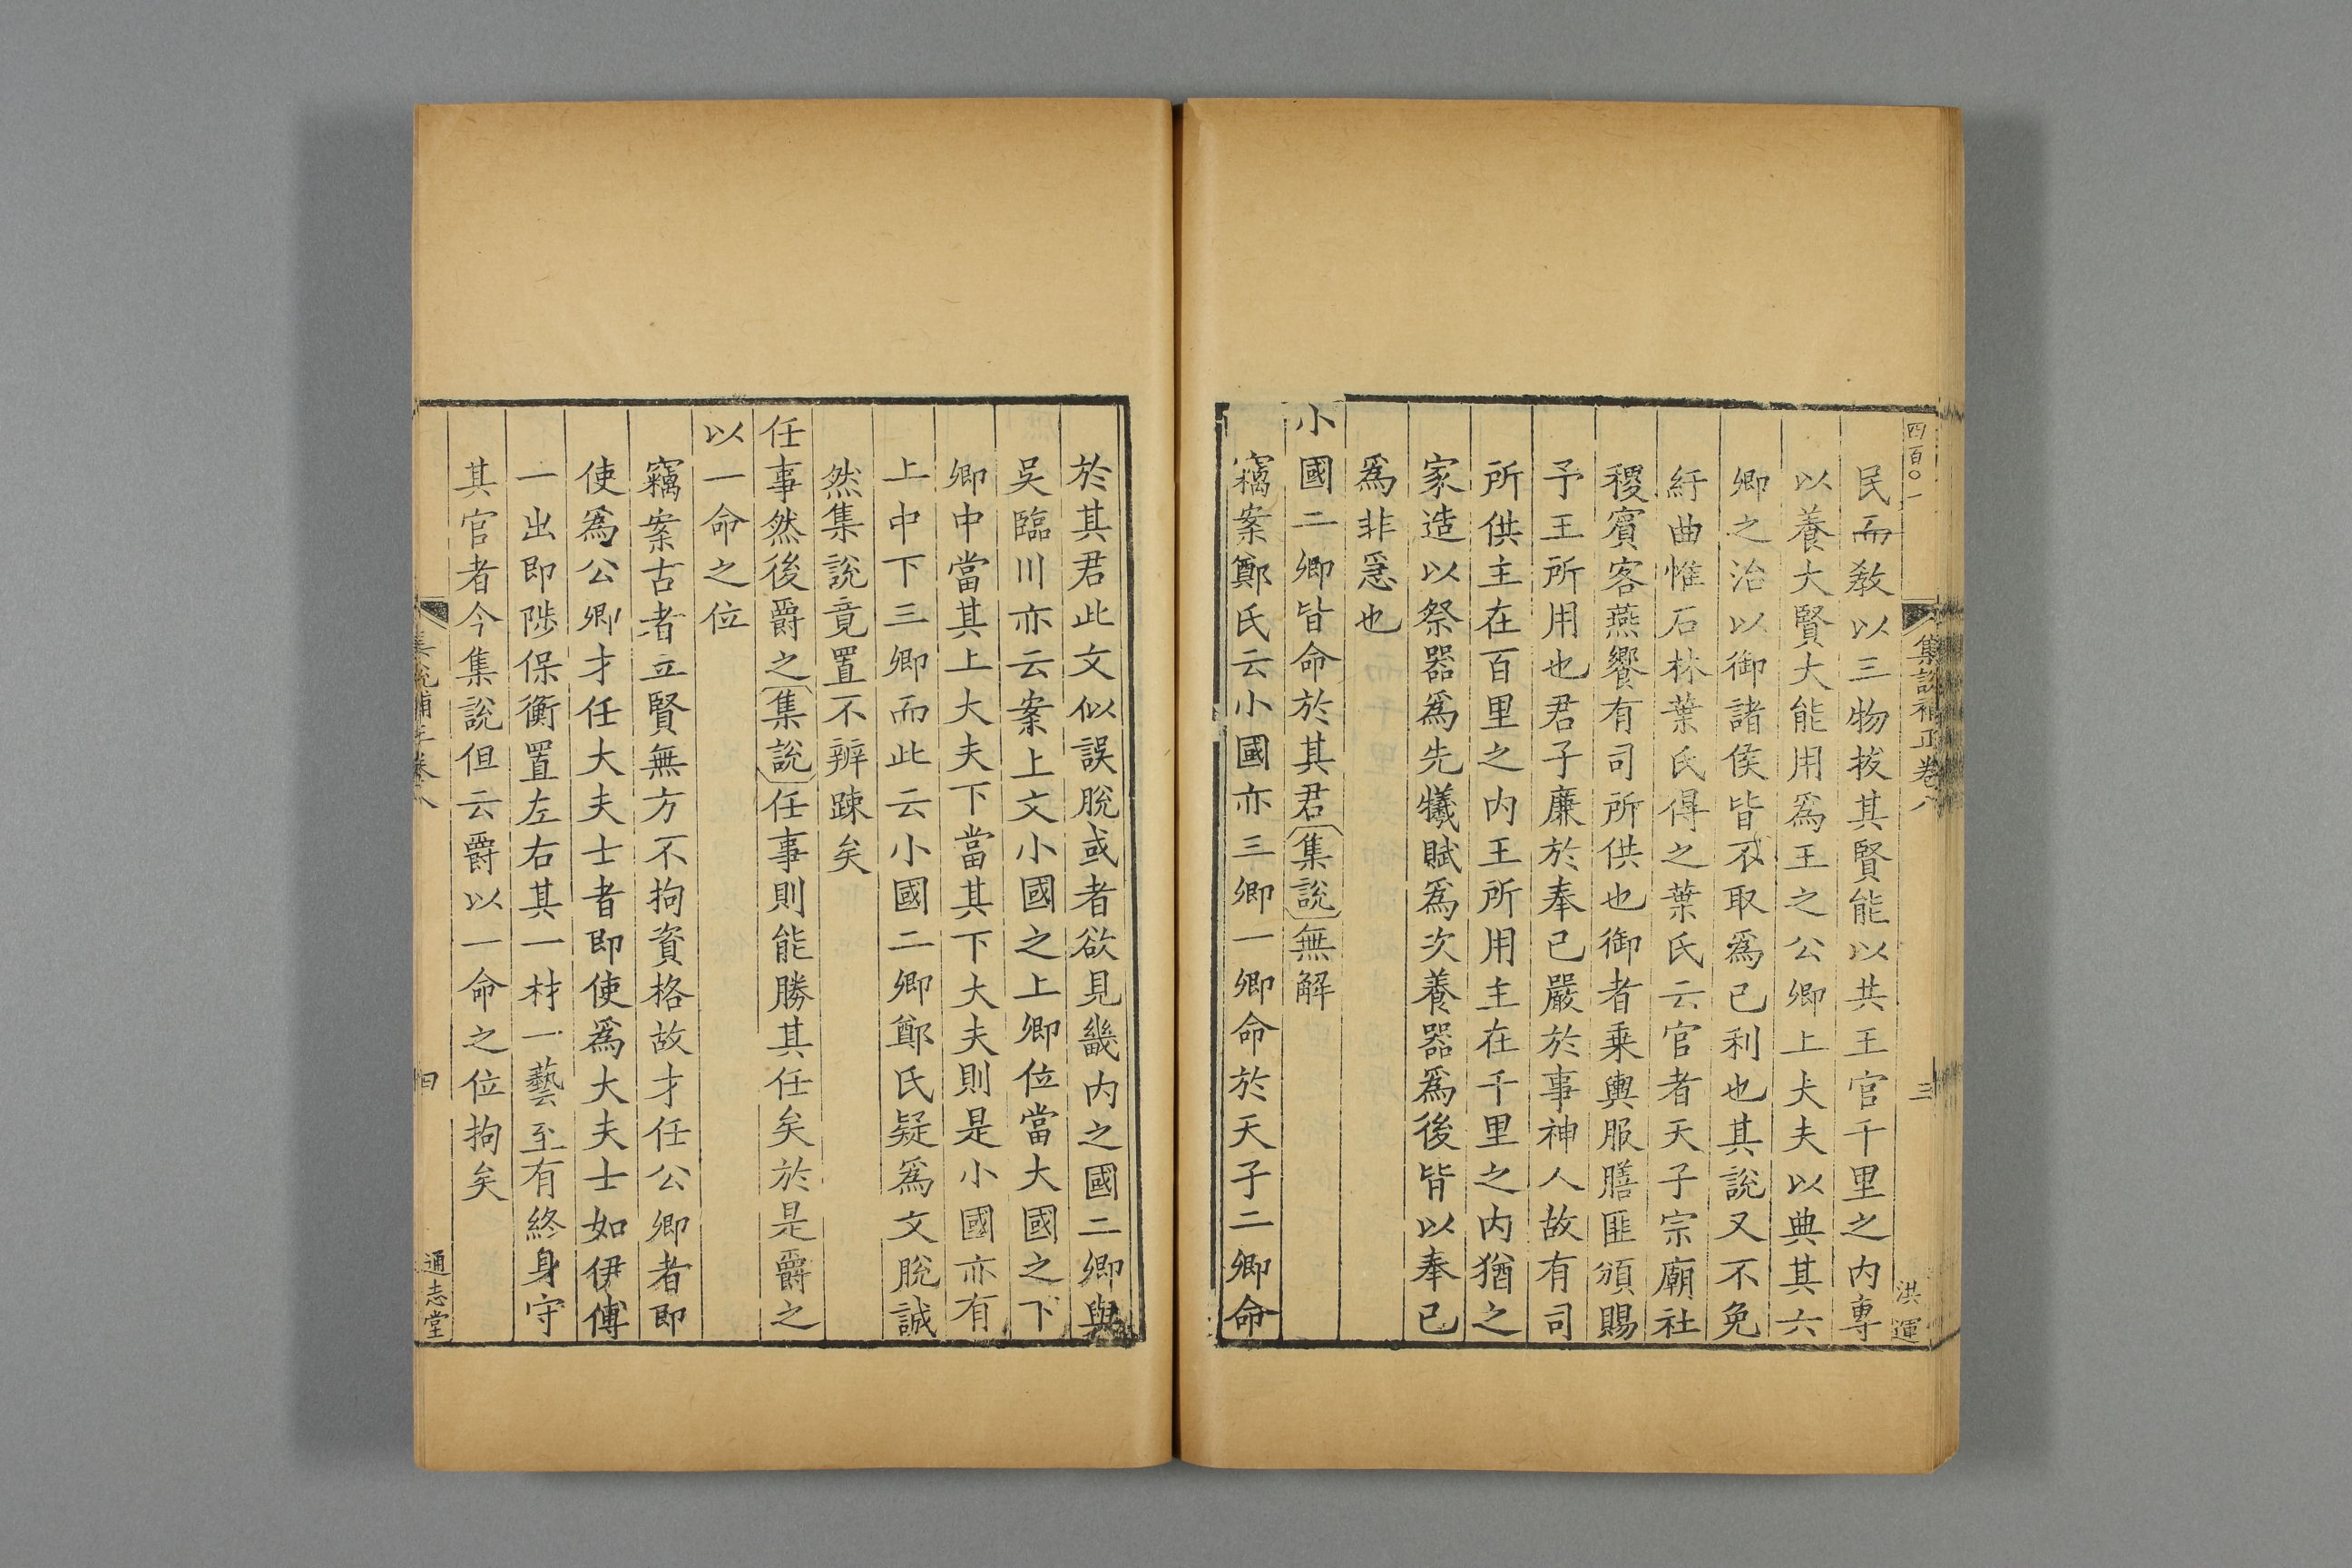 四百〇一
集說補正卷八
三
洪運
民而教以三物拔其賢能以共王官千里之内専
以養大賢大能用爲王之公卿上大夫以典其六
卿之治以御諸侯皆不取爲己利也其說又不免
紆曲惟石林葉氏得之葉氏云官者天子宗廟社
稷賓客燕饗有司所供也御者乗輿服膳匪頒賜
予王所用也君子廉於奉己嚴於事神人故有司
所供主在百里之内王所用主在千里之内猶之
家造以祭器爲先犧賦爲次養器爲後皆以奉己
爲非急也
小國二卿皆命於其君集說無解
竊案鄭氏云小國亦三卿一卿命於天子二卿命
於其君此文似誤脫或者欲見畿内之國二卿與
吳臨川亦云案上文小國之上卿位當大國之下
卿中當其上大夫下當其下大夫則是小國亦有
上中下三卿而此云小國二卿鄭氏疑爲文脫誠
然集說竟置不辨踈矣
任事然後爵之集說任事則能勝其任矣於是爵之
以一命之位
竊案古者立賢無方不拘資格故才任公卿者即
使爲公卿才任大夫士者即使爲大夫士如伊傅
一出即陟保衡置左右其一材一藝至有終身守
其官者今集說但云爵以一命之位拘矣
集說補正卷八
四
通志堂